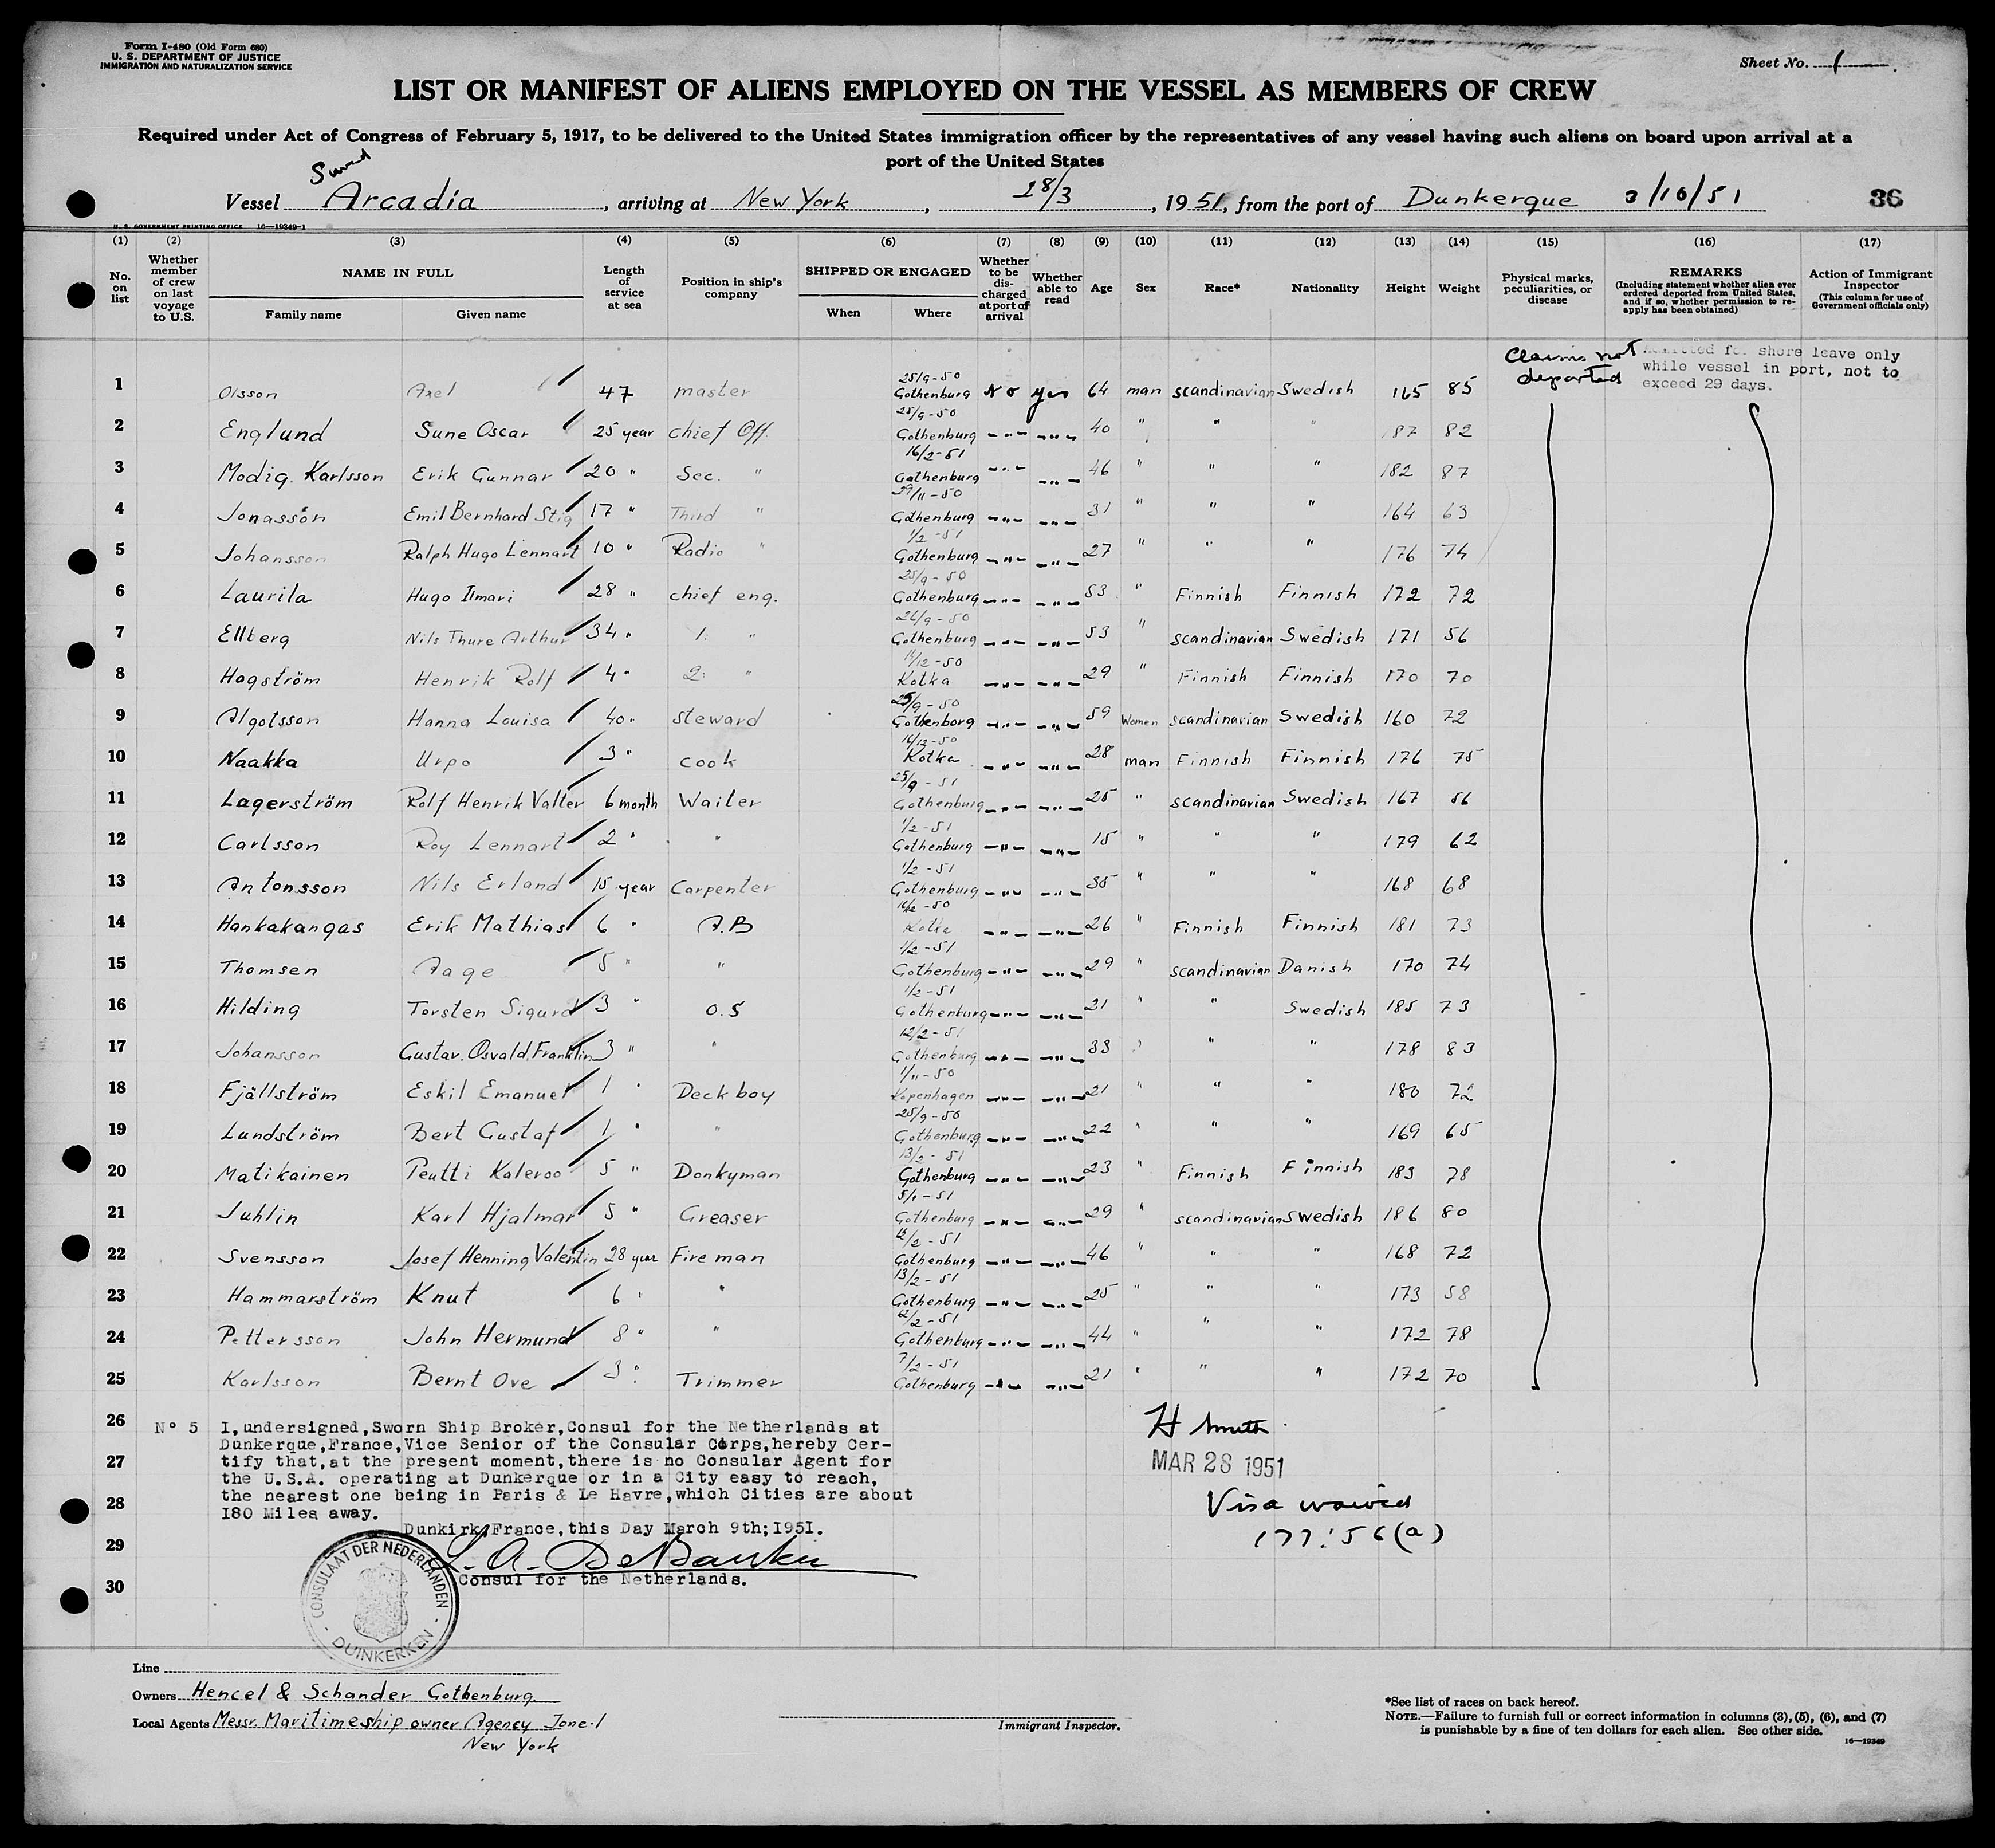 Form I-480 (Old Form 680)
U. S. DEPARTMENT OF JUSTICE
IMMIGRATION AND NATURALIZATION SERVICE
Sheet No. 1
LIST OR MANIFEST OF ALIENS EMPLOYED ON THE VESSEL AS MEMBERS OF CREW
Required under Act of Congress of February 5, 1917, to be delivered to the United States immigration officer by the representatives of any vessel having such aliens on board upon arrival at a
port of the United States
Vessel Arcadia, arriving at New York, 28/3, 1951, from the port of Dunkerque 3/10/51 36
U. S. GOVERNMENT PRINTING OFFICE 16—19349-1
(1) (2) (3) (4) (5) (6) (7) (8) (9) (10) (11) (12) (13) (14) (15) (16) (17)
No. on list
Whether member of crew on last voyage to U.S.
NAME IN FULL
Family name Given name
Length of service at sea
Position in ship's company
SHIPPED OR ENGAGED
When Where
Whether to be discharged at port of arrival
Whether able to read
Age Sex Race* Nationality Height Weight
Physical marks, peculiarities, or disease
REMARKS
(Including statement whether alien ever ordered deported from United States, and if so, whether permission to reapply has been obtained)
Action of Immigrant Inspector
(This column for use of Government officials only)
Claims not deported
Admitted for shore leave only
while vessel in port, not to
exceed 29 days.
1 Olsson Axel 47 master 25/9-50 Gothenburg No yes 64 man scandinavian Swedish 165 85
2 Englund Sune Oscar 25 year chief Off. 25/9-50 Gothenburg -"- -"- 40 " " " 187 82
3 Modig Karlsson Erik Gunnar 20 " Sec. " 16/2-51 Gothenburg -"- -"- 46 " " " 182 87
4 Jonasson Emil Bernhard Stig 17 " Third " 29/11-50 Gothenburg -"- -"- 31 " " " 164 63
5 Johansson Ralph Hugo Lennart 10 " Radio " 1/2-51 Gothenburg -"- -"- 27 " " " 176 74
6 Laurila Hugo Ilmari 28 " chief eng. 25/9-50 Gothenburg -"- -"- 53 " Finnish Finnish 172 72
7 Ellberg Nils Thure Arthur 34 " 1: " 26/9-50 Gothenburg -"- -"- 53 " scandinavian Swedish 171 56
8 Hagström Henrik Rolf 4 " 2: " 14/12-50 Kotka -"- -"- 29 " Finnish Finnish 170 70
9 Algotsson Hanna Louisa 40 " steward 25/9-50 Gothenborg -"- -"- 59 Women scandinavian Swedish 160 72
10 Naakka Urpo 3 " cook 14/12-50 Kotka -"- -"- 28 man Finnish Finnish 176 75
11 Lagerström Rolf Henrik Valter 6 month Waiter 25/9-51 Gothenburg -"- -"- 25 " scandinavian Swedish 167 56
12 Carlsson Roy Lennart 2 " " 1/2-51 Gothenburg -"- -"- 15 " " " 179 62
13 Antonsson Nils Erland 15 year Carpenter 1/2-51 Gothenburg -"- -"- 35 " " " 168 68
14 Hankakangas Erik Mathias 6 " A.B Kotka -"- -"- 26 " Finnish Finnish 181 73
15 Thomsen Aage 5 " " 1/2-51 Gothenburg -"- -"- 29 " scandinavian Danish 170 74
16 Hilding Torsten Sigurd 3 " O.S 1/2-51 Gothenburg -"- -"- 21 " " Swedish 185 73
17 Johansson Gustav Osvald Franklin 3 " " 12/2-51 Gothenburg -"- -"- 33 " " " 178 83
18 Fjällström Eskil Emanuel 1 " Deck boy 1/11-50 Kopenhagen -"- -"- 21 " " " 180 72
19 Lundström Bert Gustaf 1 " " 25/9-50 Gothenburg -"- -"- 22 " " " 169 65
20 Matikainen Peutti Kalervoo 5 " Donkyman 13/2-51 Gothenburg -"- -"- 23 " Finnish Finnish 183 78
21 Juhlin Karl Hjalmar 5 " Greaser 5/1-51 Gothenburg -"- -"- 29 " scandinavian Swedish 186 80
22 Svensson Josef Henning Valentin 28 year Fire man 12/2-51 Gothenburg -"- -"- 46 " " " 168 72
23 Hammarström Knut 6 " " 13/2-51 Gothenburg -"- -"- 25 " " " 173 58
24 Pettersson John Hermund 8 " " 12/2-51 Gothenburg -"- -"- 44 " " " 172 78
25 Karlsson Bernt Ove 3 " Trimmer 7/2-51 Gothenburg -"- -"- 21 " " " 172 70
26
27
28
29
30
N° 5 I, undersigned, Sworn Ship Broker, Consul for the Netherlands at
Dunkerque, France, Vice Senior of the Consular Corps, hereby Cer-
tify that, at the present moment, there is no Consular Agent for
the U.S.A. operating at Dunkerque or in a City easy to reach,
the nearest one being in Paris & Le Havre, which Cities are about
I80 Miles away.
Dunkirk, France, this Day March 9th; I95I.
Consul for the Netherlands.
CONSULAAT DER NEDERLANDEN
DUINKERKEN
H Smith
MAR 28 1951
Visa waived
177:56(a)
Line
Owners Hencel & Schander Gothenburg
Local Agents Messr. Maritime ship owner Agency
New York
Immigrant Inspector.
*See list of races on back hereof.
NOTE.—Failure to furnish full or correct information in columns (3), (5), (6), and (7)
is punishable by a fine of ten dollars for each alien. See other side.
16—19349